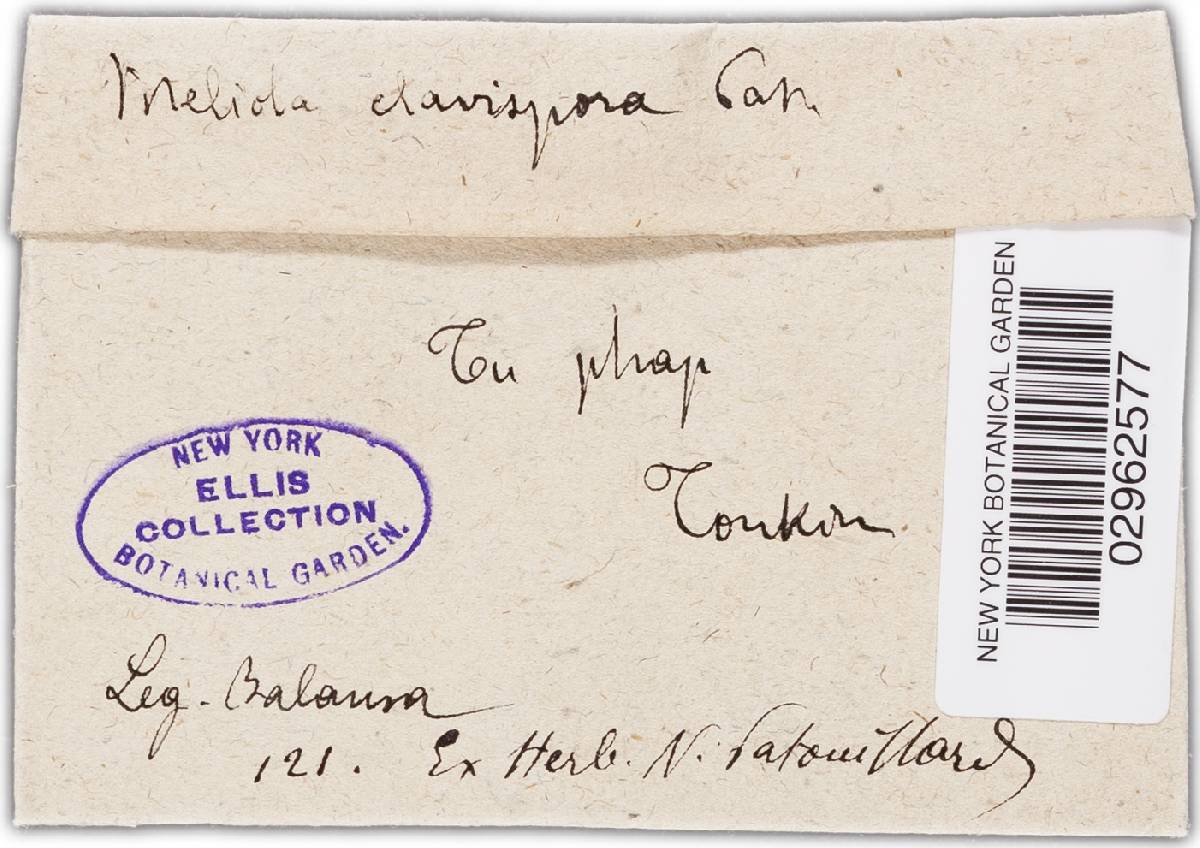 Meliola clavispora Pat.
Tu phap
Tonkin
NEW YORK
ELLIS
COLLECTION
BOTANICAL GARDEN.
Leg. Balansa
121. Ex Herb. N. Patouillard
NEW YORK BOTANICAL GARDEN
02962577